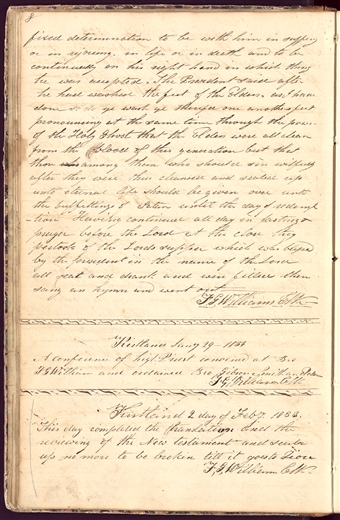 8
fixed determination to be with him in suffering
or in rejoicing in life or in death and to be
continually on his right hand in which thing
he was accepted. The President said after
he had washed the feet of the Elders, as I have
done so do ye wash ye therefore one anothers feet
pronouncing at the same time through the power
of the Holy Ghost that the Elders were all clean
from the blood of this generation but that
those among them who should sin wilfully
after they were thus cleansed and sealed up
unto eternal life should be given over unto
the buffettings of Satan until the day of redemp
-tion Having continued all day in fasting &
prayer before the Lord at the close they
partook of the Lords supper which was blessed
by the President in the name of the Lord
all eat and drank and were filled then
sang an hymn and went out
F G Williams Clk
Kirtland Jany 1833
A conference of high Priest convened at Bro
F G William and ordained Bro
F G William Clk
Kirtland 2 day of Feby 1833
This day completed the translation and the
reviewing of the New testament and sealed
up no more to be broken till it goes to Zion
F. G. William Clk.